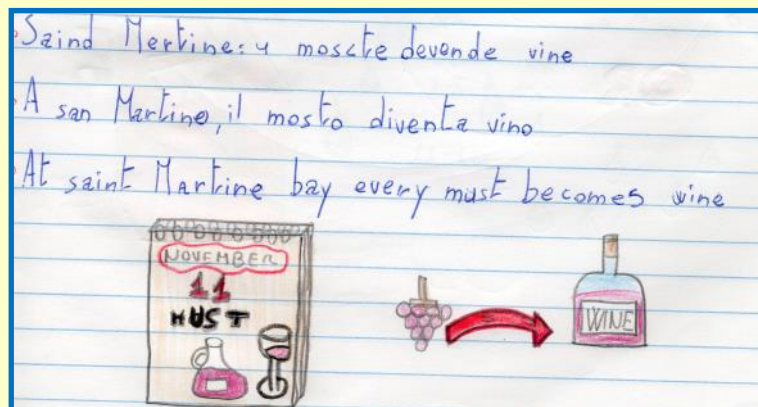 Saind Mertine: u moscte devende vine
A san Martino, il mosto diventa vino
At saint Martine bay every must becomes wine
NOVEMBER
11
MUST
WINE